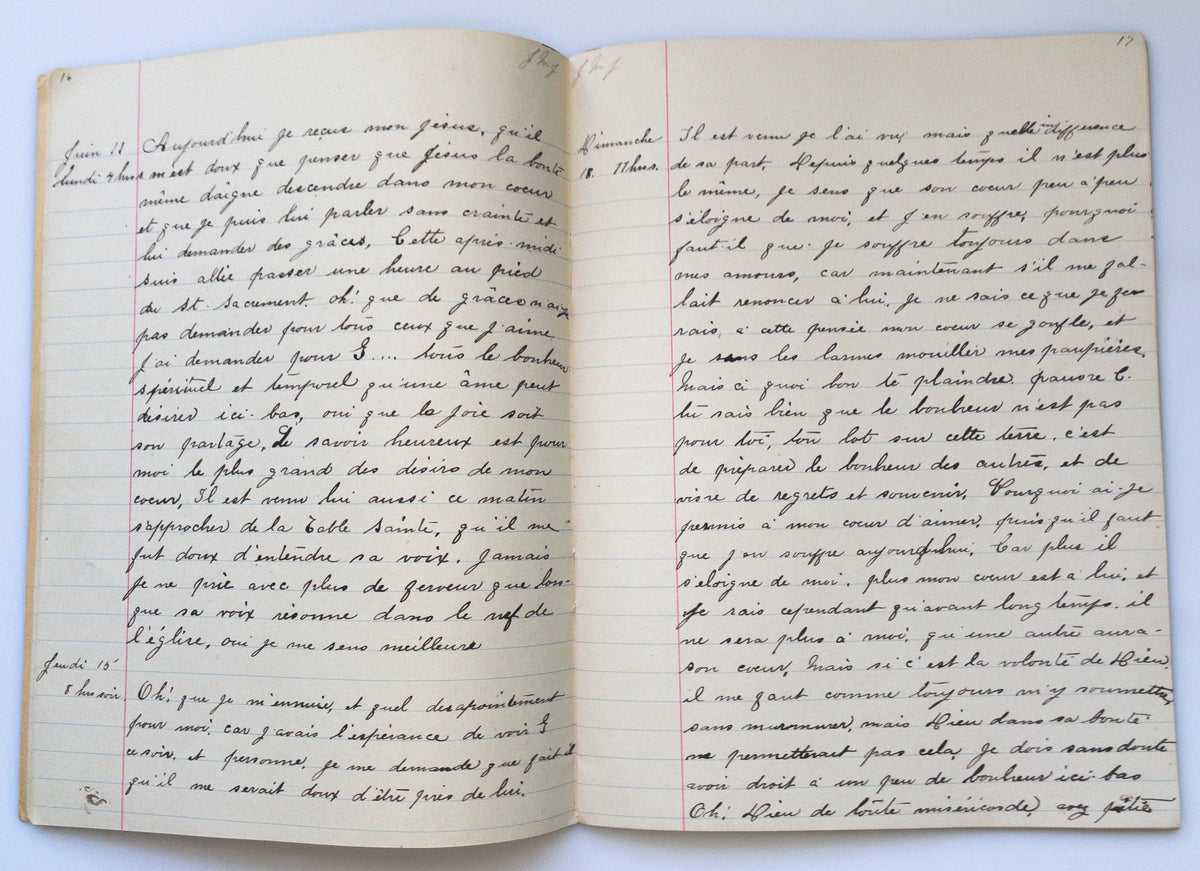 16
J M J
Juin 12 Aujourd'hui je reçus mon Jésus, qu'il
lundi 4 hrs m'est doux que penser que Jésus la bonté
même daigne descendre dans mon coeur
et que je puis lui parler sans crainte et
lui demander des grâces, Cette après-midi
suis allée passer une heure au pied
du st. sacrement oh! que de grâces n'ai-je
pas demander pour tous ceux que j'aime
J'ai demander pour G.... tous le bonheur
spirituel et temporel qu'une âme peut
désirer ici-bas, oui que la joie soit
son partage, Le savoir heureux est pour
moi le plus grand des désirs de mon
coeur, Il est venu lui aussi ce matin
s'approcher de la Table Sainte, qu'il me
fut doux d'entendre sa voix. Jamais
je ne prie avec plus de ferveur que lors-
que sa voix résonne dans le nef de
l'église, oui je me sens meilleure
Jeudi 15
8 hrs soir Oh! que je m'ennuie, et quel desapointement
pour moi, car j'avais l'espérance de voir G
ce soir, et personne, je me demande que fait il
qu'il me serait doux d'être près de lui.
17
J M J
Dimanche Il est venu je l'ai vu, mais quelle indifference
18. 11 hrs. de sa part, Depuis quelques temps il n'est plus
le même, Je sens que son coeur peu à peu
s'eloigne de moi, et j'en souffre, pourquoi
faut-il que je souffre toujours dans
mes amours, car maintenant s'il me fal-
lait renoncer à lui, je ne sais ce que je fe
rais, à cette pensée mon coeur se gonfle, et
je sens les larmes mouiller mes paupières,
Mais ci quoi bon te plaindre pauvre C.
tu sais bien que le bonheur n'est pas
pour toi, ton lot sur cette terre, c'est
de préparer le bonheur des autres, et de
vivre de regrets et souvenir, Pourquoi ai-je
permis à mon coeur d'aimer, puisqu'il faut
que j'en souffre aujourdhui, Car plus il
s'eloigne de moi, plus mon coeur est à lui, et
je sais cependant qu'avant long temps il
ne sera plus à moi, qu'une autre aura
son coeur, Mais si c'est la volonté de Dieu,
il me faut comme toujours m'y soumettre,
sans murmurer, mais Dieu dans sa bonté
ne permetterait pas cela, je dois sans doute
avoir droit à un peu de bonheur ici-bas
Oh! Dieu de toute miséricorde, ayez pitié